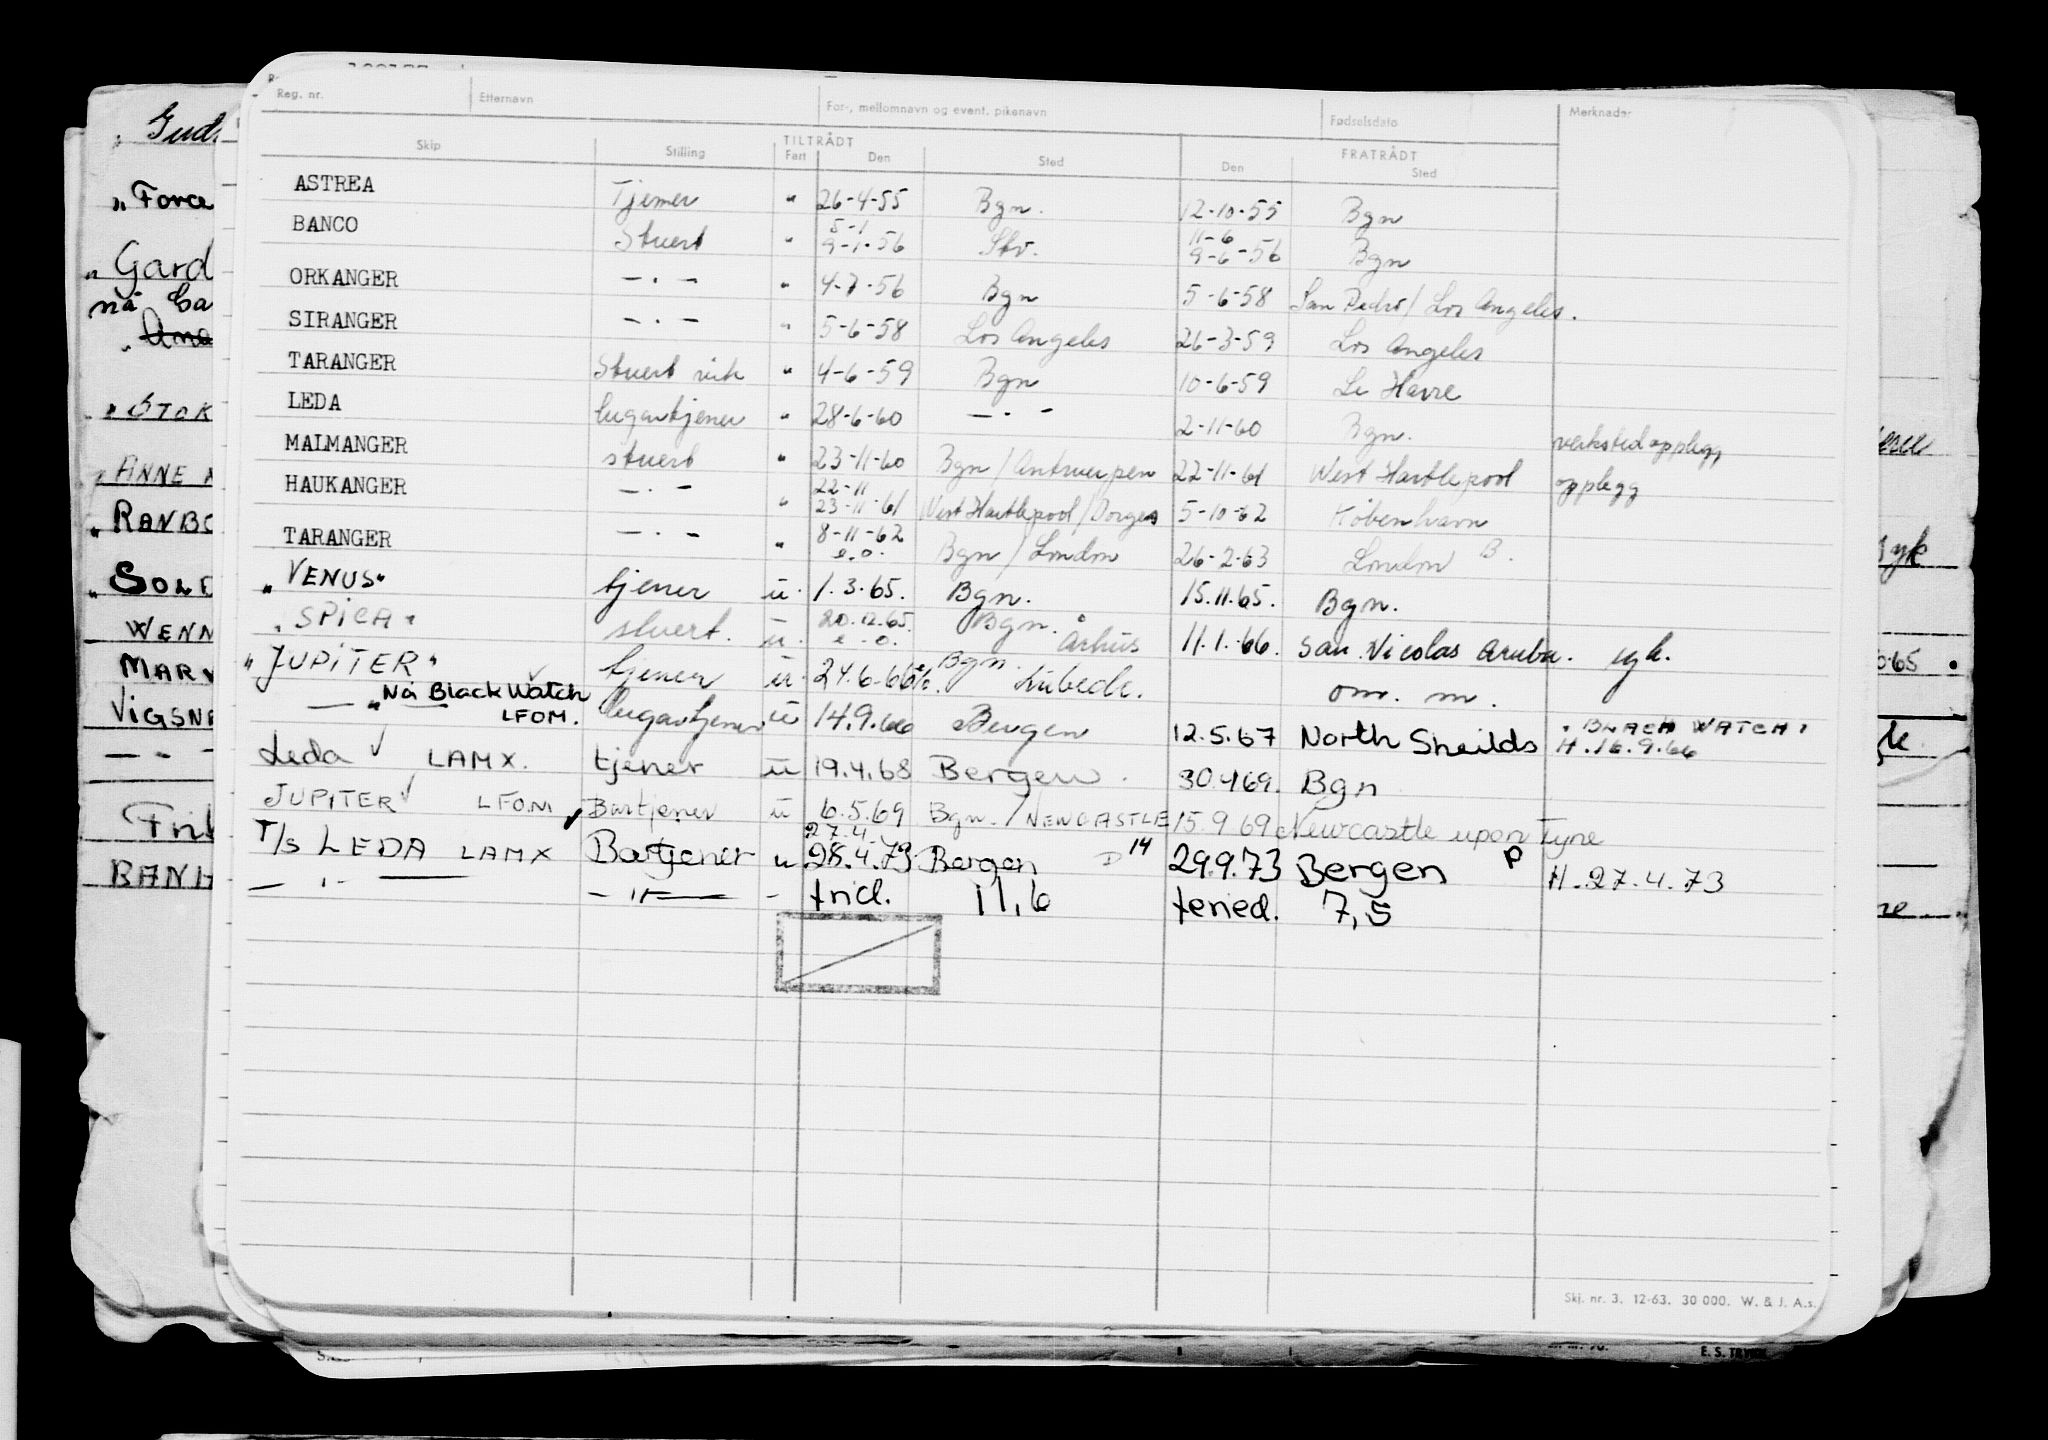 Reg. nr. Etternavn For-, mellomnavn og event. pikenavn Fødselsdato Merknader
TILTRÅDT FRATRÅDT
Skip Stilling Fart Den Sted Den Sted
ASTREA Tjener " 26-4-55 Bgn. 12-10-55 Bgn
5-1 11-6
BANCO Stuert " 9-1-56 Stv. 9-6-56 Bgn
ORKANGER — . — " 4-7-56 Bgn 5-6-58 San Pedro / Los Angeles.
SIRANGER — . — " 5-6-58 Los Angeles 26-3-59 Los Angeles
TARANGER Stuert vik " 4-6-59 Bgn 10-6-59 Le Havre
LEDA lugartjener " 28-6-60 — . — 2-11-60 Bgn. verkstedopplegg
MALMANGER stuert " 23-11-60 Bgn / Antwerpen 22-11-61 West Hartlepool opplegg
22-11
HAUKANGER — . — " 23-11-61 West Hartlepool / 5-10-62 København
TARANGER — . — " 8-11-62 Bgn / London 26-2-63 London B.
e.o.
"VENUS" tjener u. 1.3.65. Bgn. 15.11.65. Bgn.
"SPICA" stuert. u. 20.12.65. Bgn. Århus 11.1.66. San Nicolas Aruba. syk.
e.o.
"JUPITER" tjener u. 24.6.66 Bgn. Lübeck. om. m.
— " — Nå Black Watch LFOM. lugartjener u 14.9.66 Bergen 12.5.67 North Sheilds "BLACK WATCH"
H. 16.9.66
Leda ✓ LAMX. tjener u 19.4.68 Bergen. 30.4.69. Bgn
JUPITER ✓ LFOM Bartjener u 6.5.69 Bgn. / NEWCASTLE 15.9.69 Newcastle upon Tyne
27.4
T/S LEDA LAMX Bartjener u 28.4.73 Bergen D 14 29.9.73 Bergen P H. 27.4.73
— " — — " — - trid. 11,6 feried. 7,5
Skj. nr. 3. 12-63. 30 000. W. & J. A.s.
Force
Gard
nå
ANNE
WENN
VIGSNE
E. S.